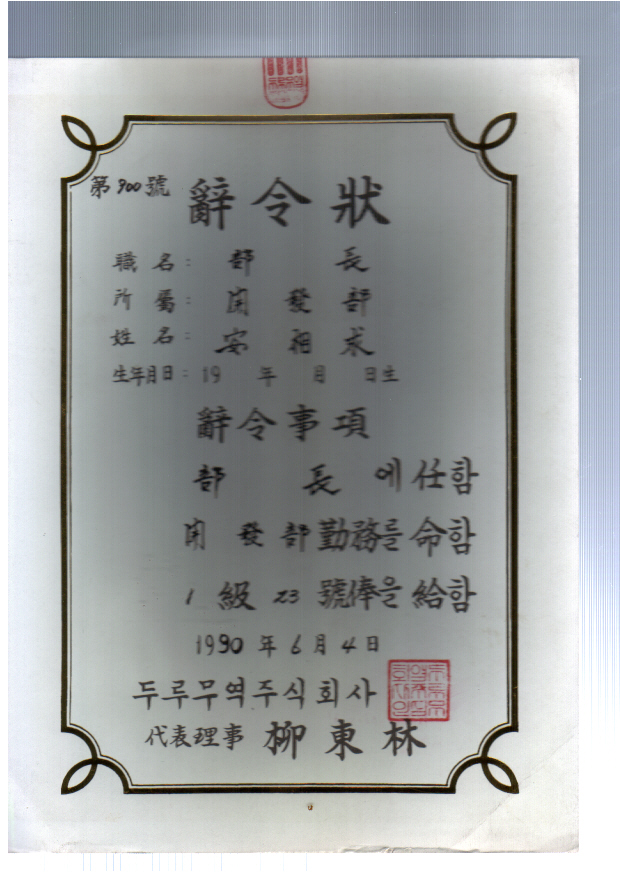 第900號
辭令狀
職名: 部長
所屬: 開發部
姓名: 安相求
生年月日: 19 年 月 日生
辭令事項
部長에任함
開發部勤務를命함
1級23號俸을給함
1990年6月4日
두루무역주식회사
代表理事 柳東林